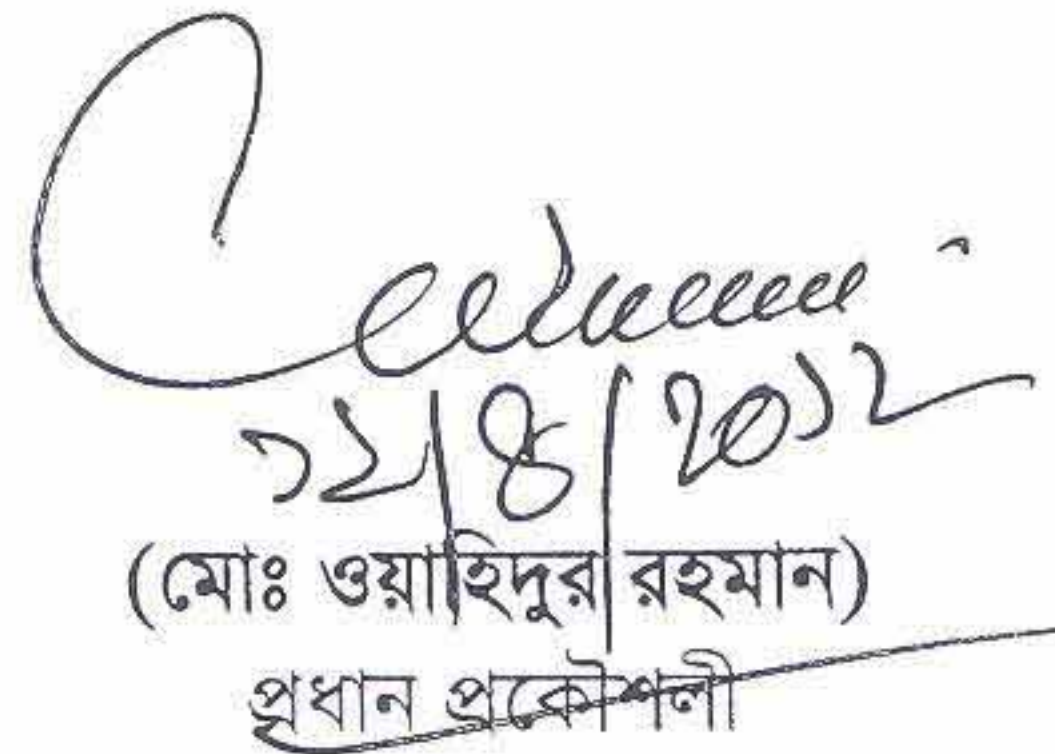 ১২/৪/২০১২
(মোঃ ওয়াহিদুর রহমান)
প্রধান প্রকৌশলী